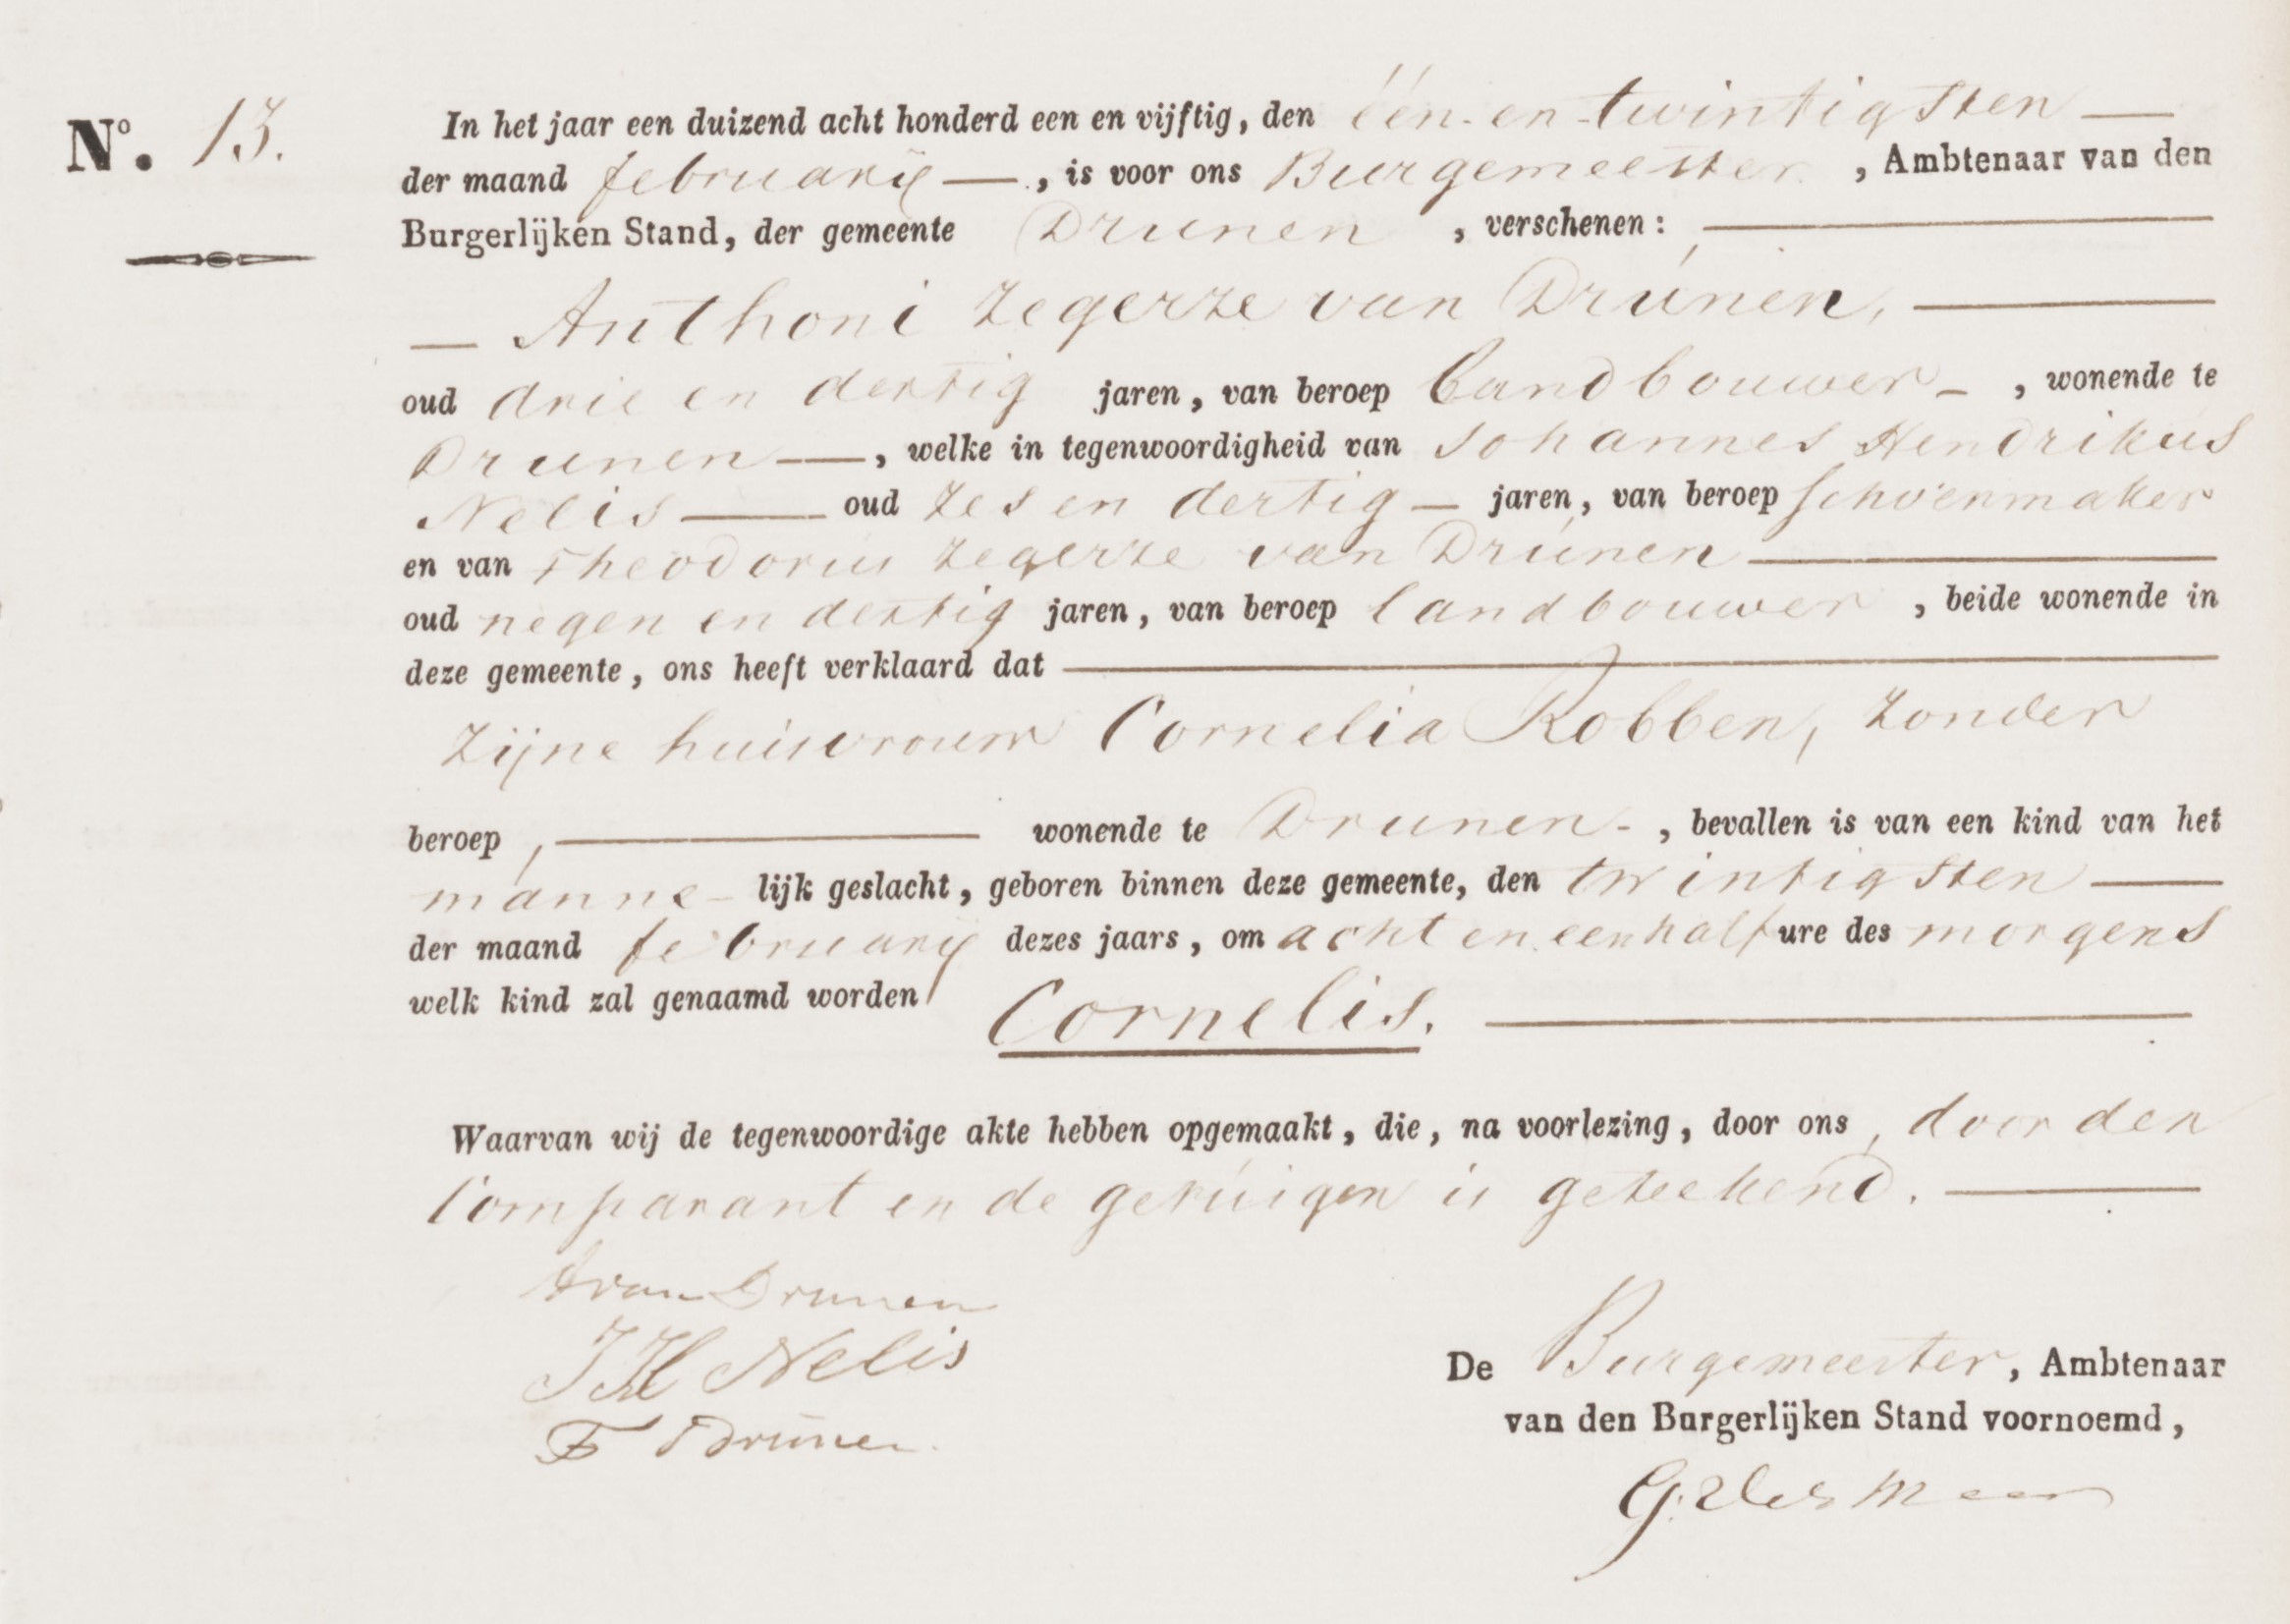 No. 13.
In het jaar een duizend acht honderd een en vijftig, den één-en-twintigsten —
der maand februarij —, is voor ons Burgemeester, Ambtenaar van den
Burgerlijken Stand, der gemeente Drunen, verschenen: —
— Anthoni Zegerze van Drúnen, —
oud drie en dertig jaren, van beroep Landbouwer —, wonende te
Drunen —, welke in tegenwoordigheid van Johannes Hendrikus
Nelis — oud zes en dertig — jaren, van beroep schoenmaker
en van Theodorus Zegerze van Drúnen —
oud negen en dertig jaren, van beroep landbouwer, beide wonende in
deze gemeente, ons heeft verklaard dat —
zijne huisvrouw Cornelia Robben, zonder
beroep, — wonende te Drunen -, bevallen is van een kind van het
manne- lijk geslacht, geboren binnen deze gemeente, den twintigsten —
der maand februarij dezes jaars, om acht en een half ure des morgens
welk kind zal genaamd worden Cornelis. —
Waarvan wij de tegenwoordige akte hebben opgemaakt, die, na voorlezing, door ons, door den
Comparant en de getúigen is geteekend. —
A van Drunen
JH Nelis
De Burgemeester, Ambtenaar
T Drúnen
van den Burgerlijken Stand voornoemd,